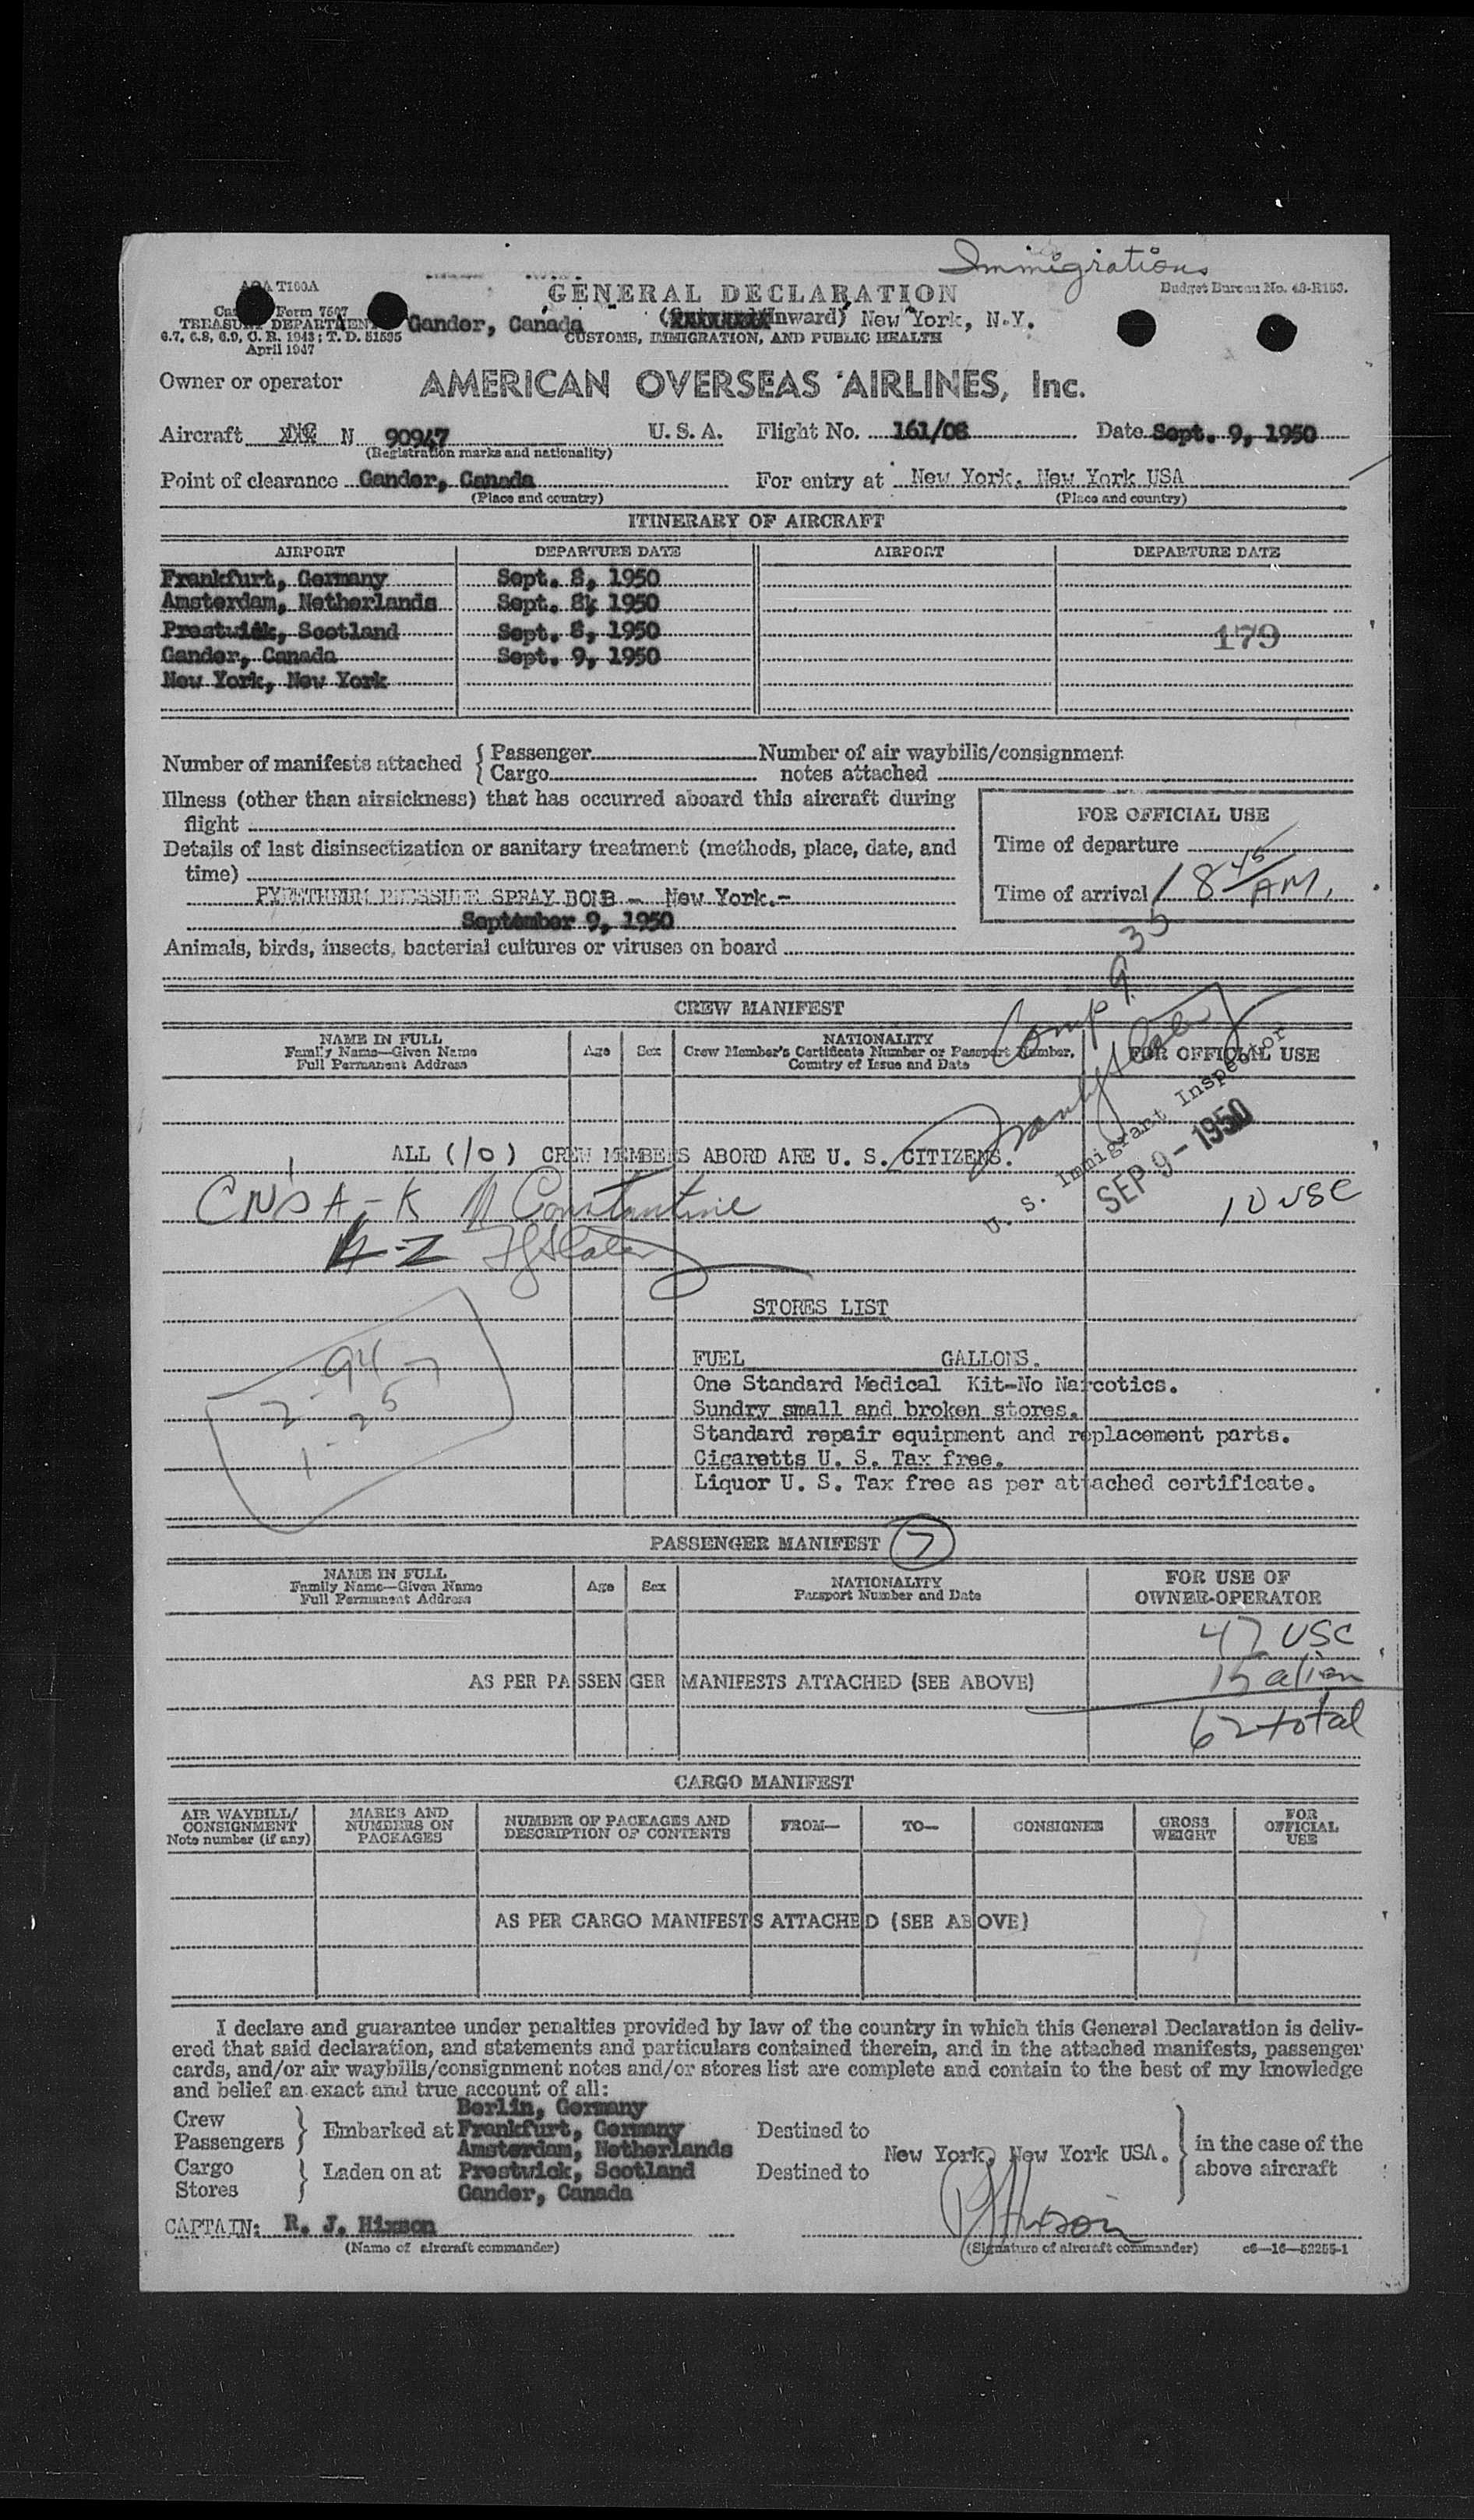 Immigrations
AOA T100A
GENERAL DECLARATION
Budget Bureau No. 48-R153.
Form 7507
TREASURY DEPARTMENT
Gander, Canada
(Inward) New York, N.Y.
6.7, 6.8, 6.9, C. R. 1943; T. D. 51595
CUSTOMS, IMMIGRATION, AND PUBLIC HEALTH
April 1947
Owner or operator AMERICAN OVERSEAS AIRLINES, Inc.
Aircraft N 90947 U. S. A. Flight No. 161/08 Date Sept. 9, 1950
(Registration marks and nationality)
Point of clearance Gander, Canada For entry at New York, New York USA
(Place and country) (Place and country)
ITINERARY OF AIRCRAFT
AIRPORT DEPARTURE DATE AIRPORT DEPARTURE DATE
Frankfurt, Germany Sept. 8, 1950
Amsterdam, Netherlands Sept. 8, 1950
Prestwick, Scotland Sept. 8, 1950
179
Gander, Canada Sept. 9, 1950
New York, New York
Number of manifests attached { Passenger Number of air waybills/consignment
{ Cargo notes attached
Illness (other than airsickness) that has occurred aboard this aircraft during
flight
FOR OFFICIAL USE
Details of last disinsectization or sanitary treatment (methods, place, date, and
time)
Time of departure
PYRETHEUM PRESSURE SPRAY BOMB - New York.-
Time of arrival 8 45 AM.
September 9, 1950
Animals, birds, insects, bacterial cultures or viruses on board
Comp 9 35
CREW MANIFEST
NAME IN FULL
Family Name—Given Name
Full Permanent Address
Age Sex
NATIONALITY
Crew Member's Certificate Number or Passport Number,
Country of Issue and Date
FOR OFFICIAL USE
U. S. Immigrant Inspector
SEP 9 - 1950
ALL (10) CREW MEMBERS ABORD ARE U. S. CITIZENS.
10 USC
A-K Constantine
L-Z
STORES LIST
94
7
2 25
1-
FUEL GALLONS.
One Standard Medical Kit-No Narcotics.
Sundry small and broken stores.
Standard repair equipment and replacement parts.
Cigaretts U. S. Tax free.
Liquor U. S. Tax free as per attached certificate.
PASSENGER MANIFEST 7
NAME IN FULL
Family Name—Given Name
Full Permanent Address
Age Sex
NATIONALITY
Passport Number and Date
FOR USE OF
OWNER-OPERATOR
47 USC
AS PER PASSENGER MANIFESTS ATTACHED (SEE ABOVE)
15 alien
62 total
CARGO MANIFEST
AIR WAYBILL/
CONSIGNMENT
Note number (if any)
MARKS AND
NUMBERS ON
PACKAGES
NUMBER OF PACKAGES AND
DESCRIPTION OF CONTENTS
FROM— TO— CONSIGNEE
GROSS
WEIGHT
FOR
OFFICIAL
USE
AS PER CARGO MANIFESTS ATTACHED (SEE ABOVE)
I declare and guarantee under penalties provided by law of the country in which this General Declaration is deliv-
ered that said declaration, and statements and particulars contained therein, and in the attached manifests, passenger
cards, and/or air waybills/consignment notes and/or stores list are complete and contain to the best of my knowledge
and belief an exact and true account of all:
Berlin, Germany
Crew
Passengers } Embarked at Frankfurt, Germany Destined to
Amsterdam, Netherlands New York, New York USA. } in the case of the
Cargo
Stores } Laden on at Prestwick, Scotland Destined to above aircraft
Gander, Canada
CAPTAIN: R. J. Hixson RJHixson
(Name of aircraft commander) (Signature of aircraft commander) c6—16—52255-1